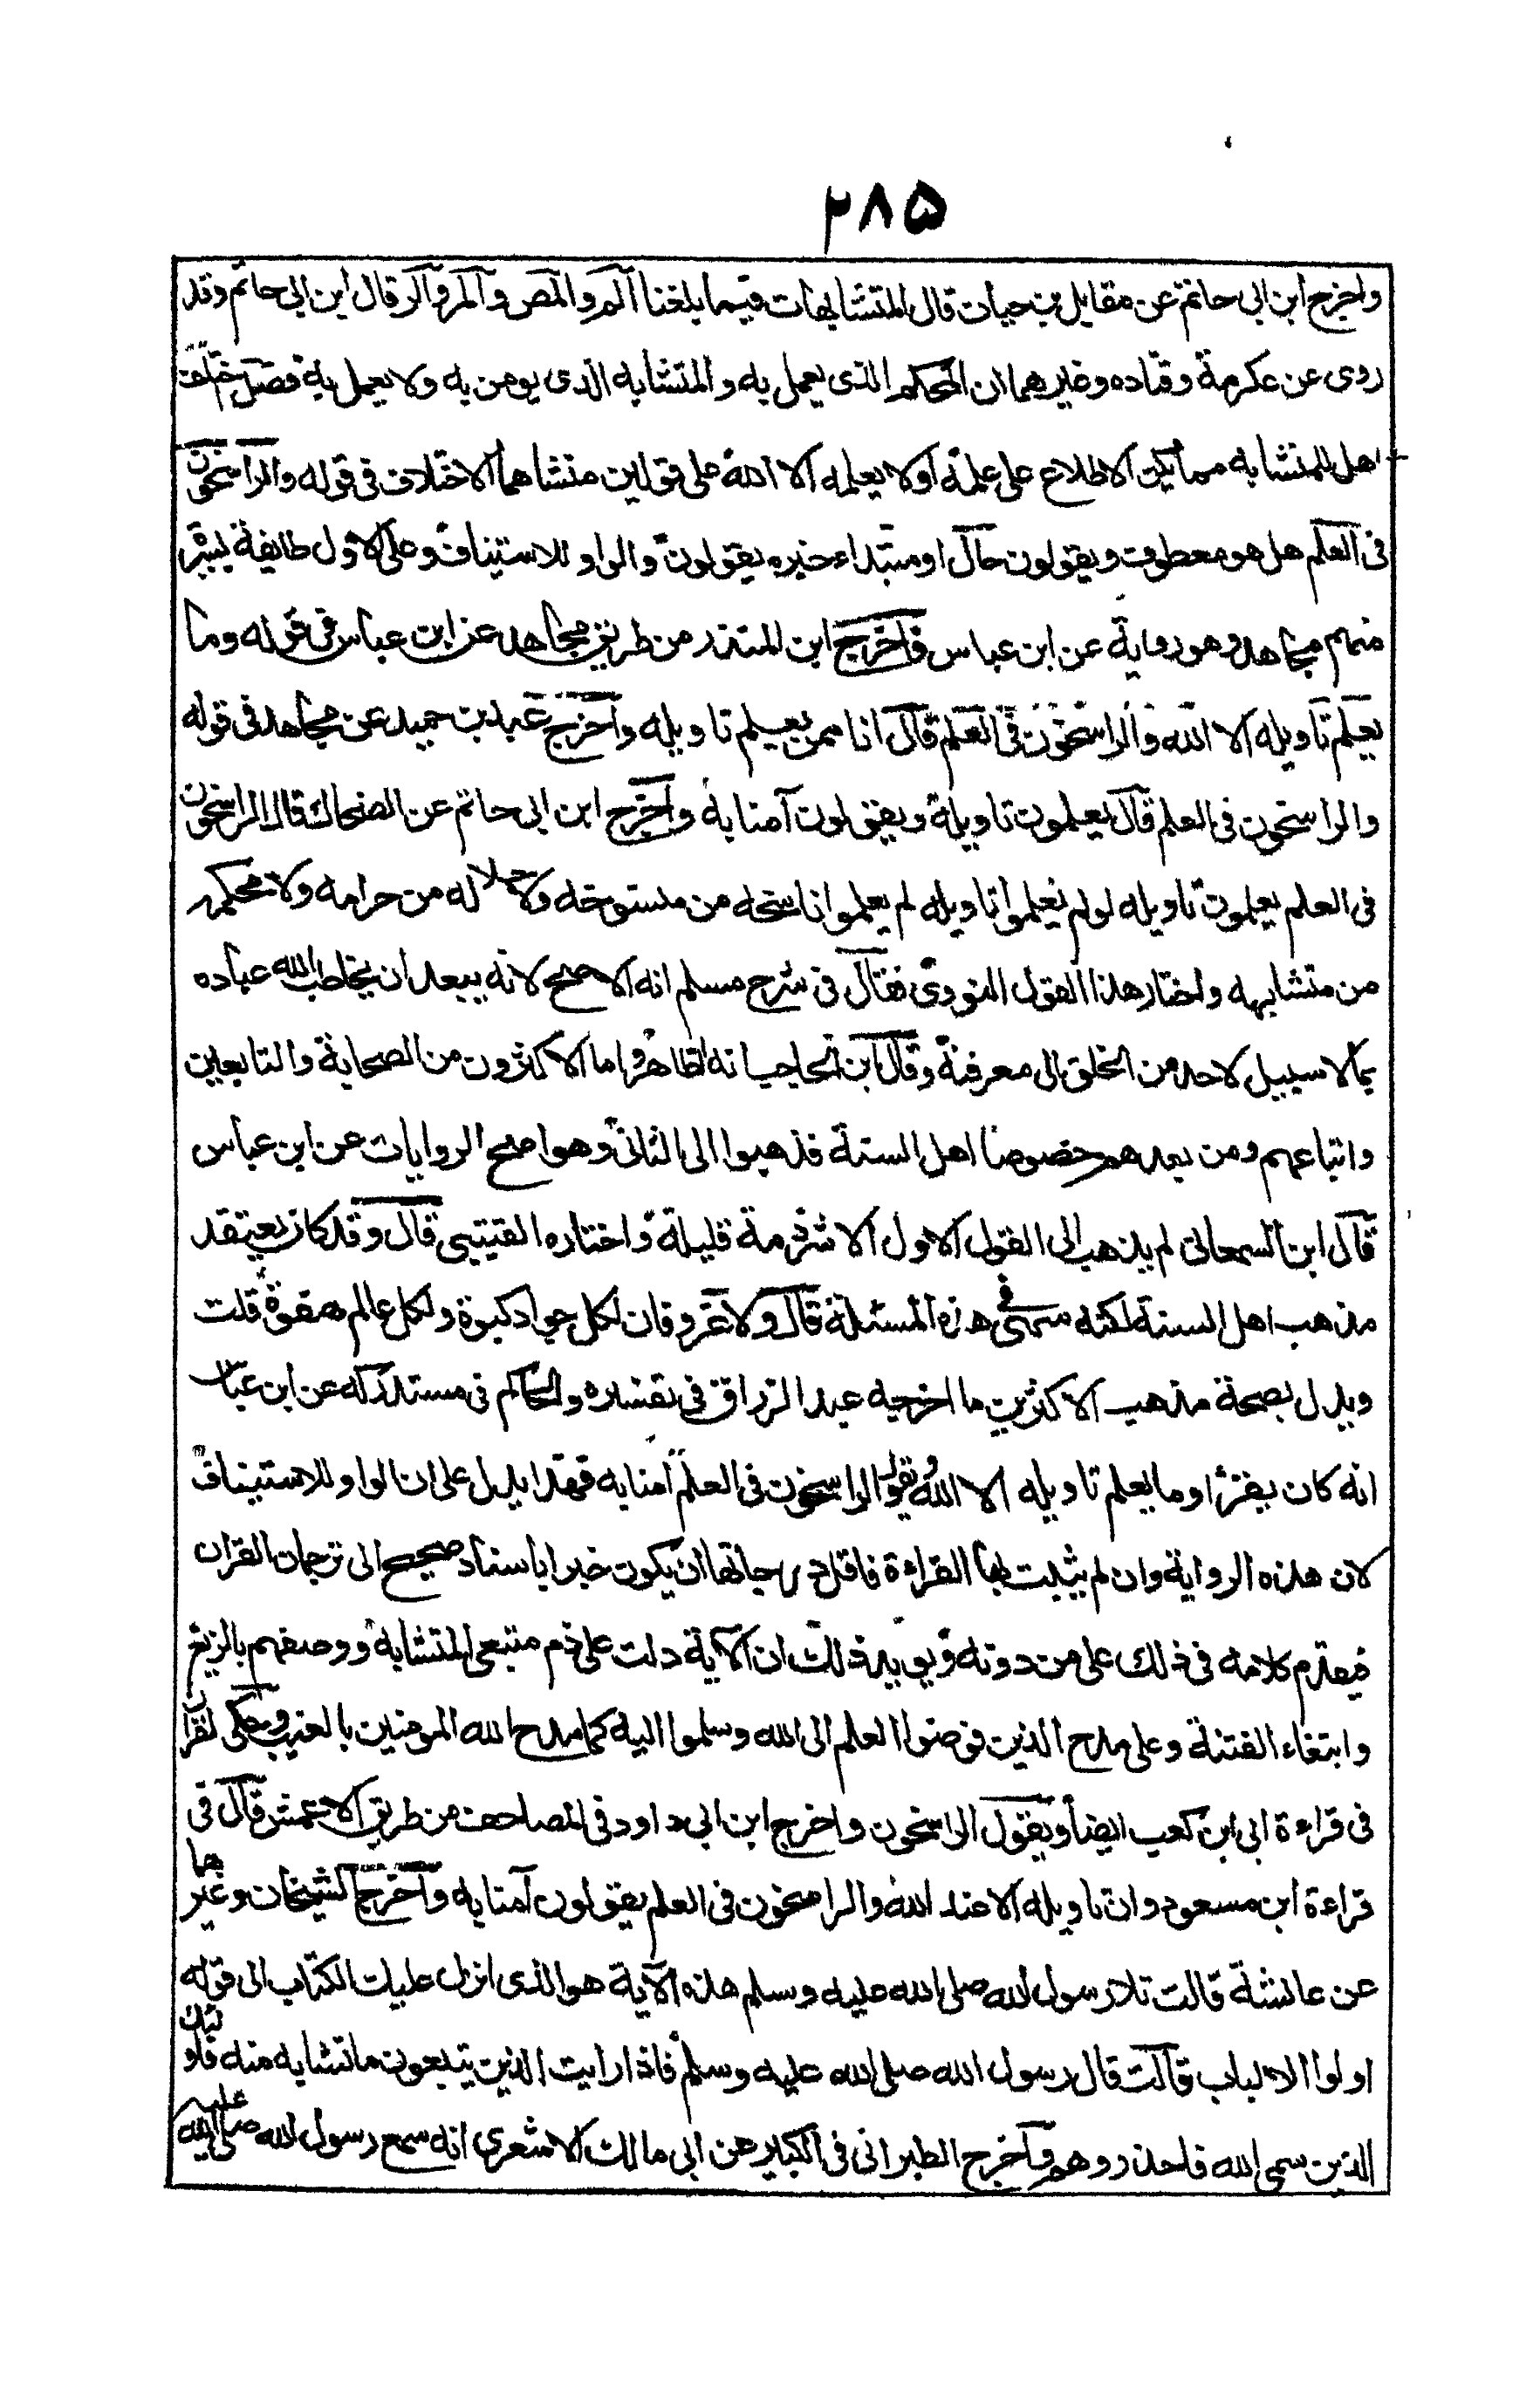 ۲۸۵
واخرج ابن ابي حاتم عن مقاتل بن حيان قال المتشابهات فيما بلغنا الم والمص والمر والر قال ابن ابي حاتم وقد
روى عن عكرمة وقتاده وغيرهما ان المحكم الذى يعمل به والمتشابه الذى يومن به ولا يعمل به فصل اختلف
اهل المتشابه مما يمكن الاطلاع على علمه اولا يعلمه الا الله على قولين منشاهما الاختلاف فى قوله والراسخون
فى العلم هل هو معطوف ويقولون حال او مبتداء خبره يقولون والواو للاستيناف وعلى الاول طايفة يسيرة
منهم مجاهد وهو رواية عن ابن عباس فاخرج ابن المنذر من طريق مجاهد عن ابن عباس فى قوله وما
يعلم تاويله الا الله والراسخون فى العلم قال انا ممن يعلم تاويله واخرج عبد بن حميد عن مجاهد فى قوله
والراسخون فى العلم قال يعلمون تاويله ويقولون آمنا به واخرج ابن ابي حاتم عن الضحاك قال الراسخون
فى العلم يعلمون تاويله لو لم يعلموا تاويله لم يعلموا ناسخه من منسوخه ولا حلاله من حرامه ولا محكمه
من متشابهه واختار هذا القول النووى فقال فى شرح مسلم انه الاصح لانه يبعد ان يخاطب الله عباده
بما لا سبيل لاحد من الخلق الى معرفته وقال ابن الحاجب انه الظاهر واما الاكثرون من الصحابة والتابعين
واتباعهم ومن بعدهم خصوصا اهل السنة فذهبوا الى الثانى وهو اصح الروايات عن ابن عباس
قال ابن السمعانى لم يذهب الى القول الاول الا شرذمة قليلة واختاره القتيبى قال وقد كان يعتقد
مذهب اهل السنة لكنه سهى فى هذه المسئلة قال ولا غرو فان لكل جواد كبوة ولكل عالم هفوة قلت
ويدل بصحة مذهب الاكثرين ما اخرجه عبد الرزاق فى تفسيره والحاكم فى مستدركه عن ابن عباس
انه كان يقرأ وما يعلم تاويله الا الله ويقول الراسخون فى العلم امنا به فهذا يدل على ان الواو للاستيناف
لان هذه الرواية وان لم يثبت بها القراءة فاقل درجاتها ان يكون خبرا باسناد صحيح الى ترجمان القران
فيقدم كلامه فى ذلك على من دونه ويويد ذلك ان الآية دلت على ذم متبعى المتشابه ووصفهم بالزيغ
وابتغاء الفتنة وعلى مدح الذين فوضوا العلم الى الله وسلموا اليه كما مدح الله المومنين بالغيب وحكى الفراء
فى قراءة ابى ابن كعب ايضا ويقول الراسخون واخرج ابن ابي داود فى المصاحف من طريق الاعمش قال فى
قراءة ابن مسعود وان تاويله الا عند الله والراسخون فى العلم يقولون آمنا به واخرج الشيخان وغيرهما
عن عائشة قالت تلا رسول الله صلى الله عليه وسلم هذه الآية هو الذى انزل عليك الكتاب الى قوله
اولوا الالباب قالت قال رسول الله صلى الله عليه وسلم فاذا رايت الذين يتبعون ما تشابه منه فاولئك
الذين سمى الله فاحذروهم واخرج الطبرانى فى الكبير عن ابي مالك الاشعرى انه سمع رسول الله صلى الله عليه